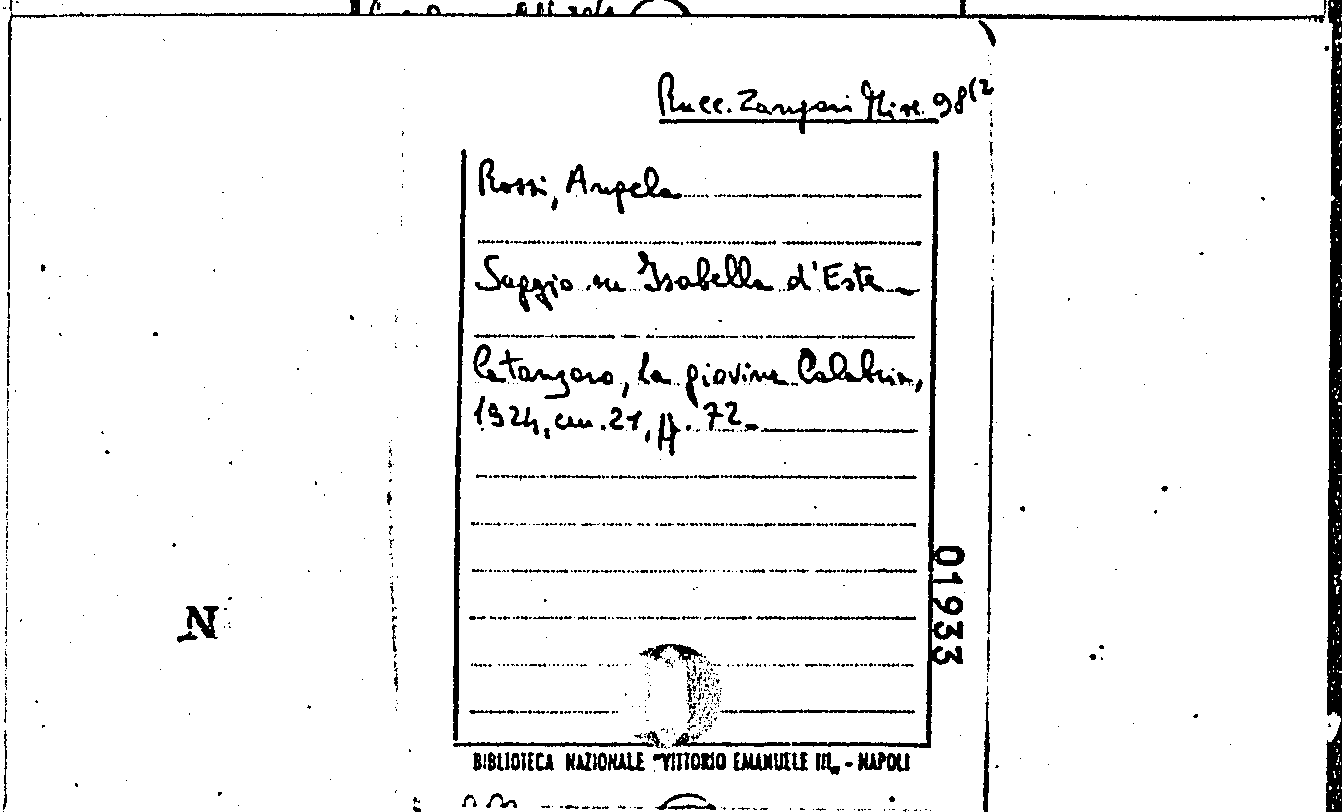 Racc. Zangari Misc. 98(2
Rossi, Angela
Saggio su Isabella d'Este
Catanzaro, La giovine Calabria,
1924, cm. 21, pp. 72.
01933
N
BIBLIOTECA NAZIONALE "VITTORIO EMANUELE III„ - NAPOLI